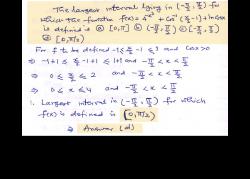 The largest interval lying in (-π/2, π/2) for
which the function f(x) = 4^-x² + cos⁻¹(x/2 - 1) + ln cosx
is defined is ⓐ [0, π] ⓑ (-π/2, π/2) ⓒ [-π/4, π/2)
ⓓ [0, π/2)
For f to be defined -1 ≤ x/2 - 1 ≤ 1 and cosx > 0
⇒ -1+1 ≤ x/2 -1+1 ≤ 1+1 and -π/2 < x < π/2
⇒ 0 ≤ x/2 ≤ 2 and -π/2 < x < π/2
⇒ 0 ≤ x ≤ 4 and -π/2 < x < π/2
∴ Largest interval in (-π/2, π/2) for which
f(x) is defined is [0, π/2)
⇒ Answer (d)